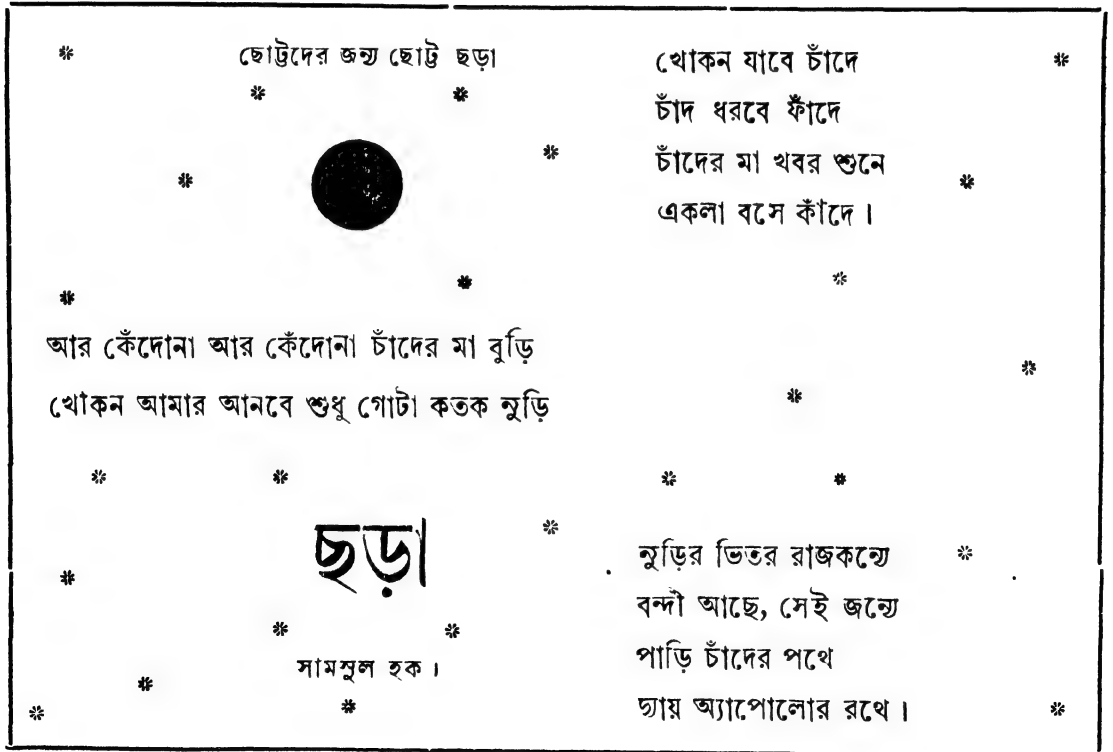 ছোট্টদের জন্য ছোট্ট ছড়া
খোকন যাবে চাঁদে
চাঁদ ধরবে ফাঁদে
চাঁদের মা খবর শুনে
একলা বসে কাঁদে।
আর কেঁদোনা আর কেঁদোনা চাঁদের মা বুড়ি
খোকন আমার আনবে শুধু গোটা কতক নুড়ি
ছড়া
সামসুল হক।
নুড়ির ভিতর রাজকন্যে
বন্দী আছে, সেই জন্যে
পাড়ি চাঁদের পথে
দ্যায় অ্যাপোলোর রথে।